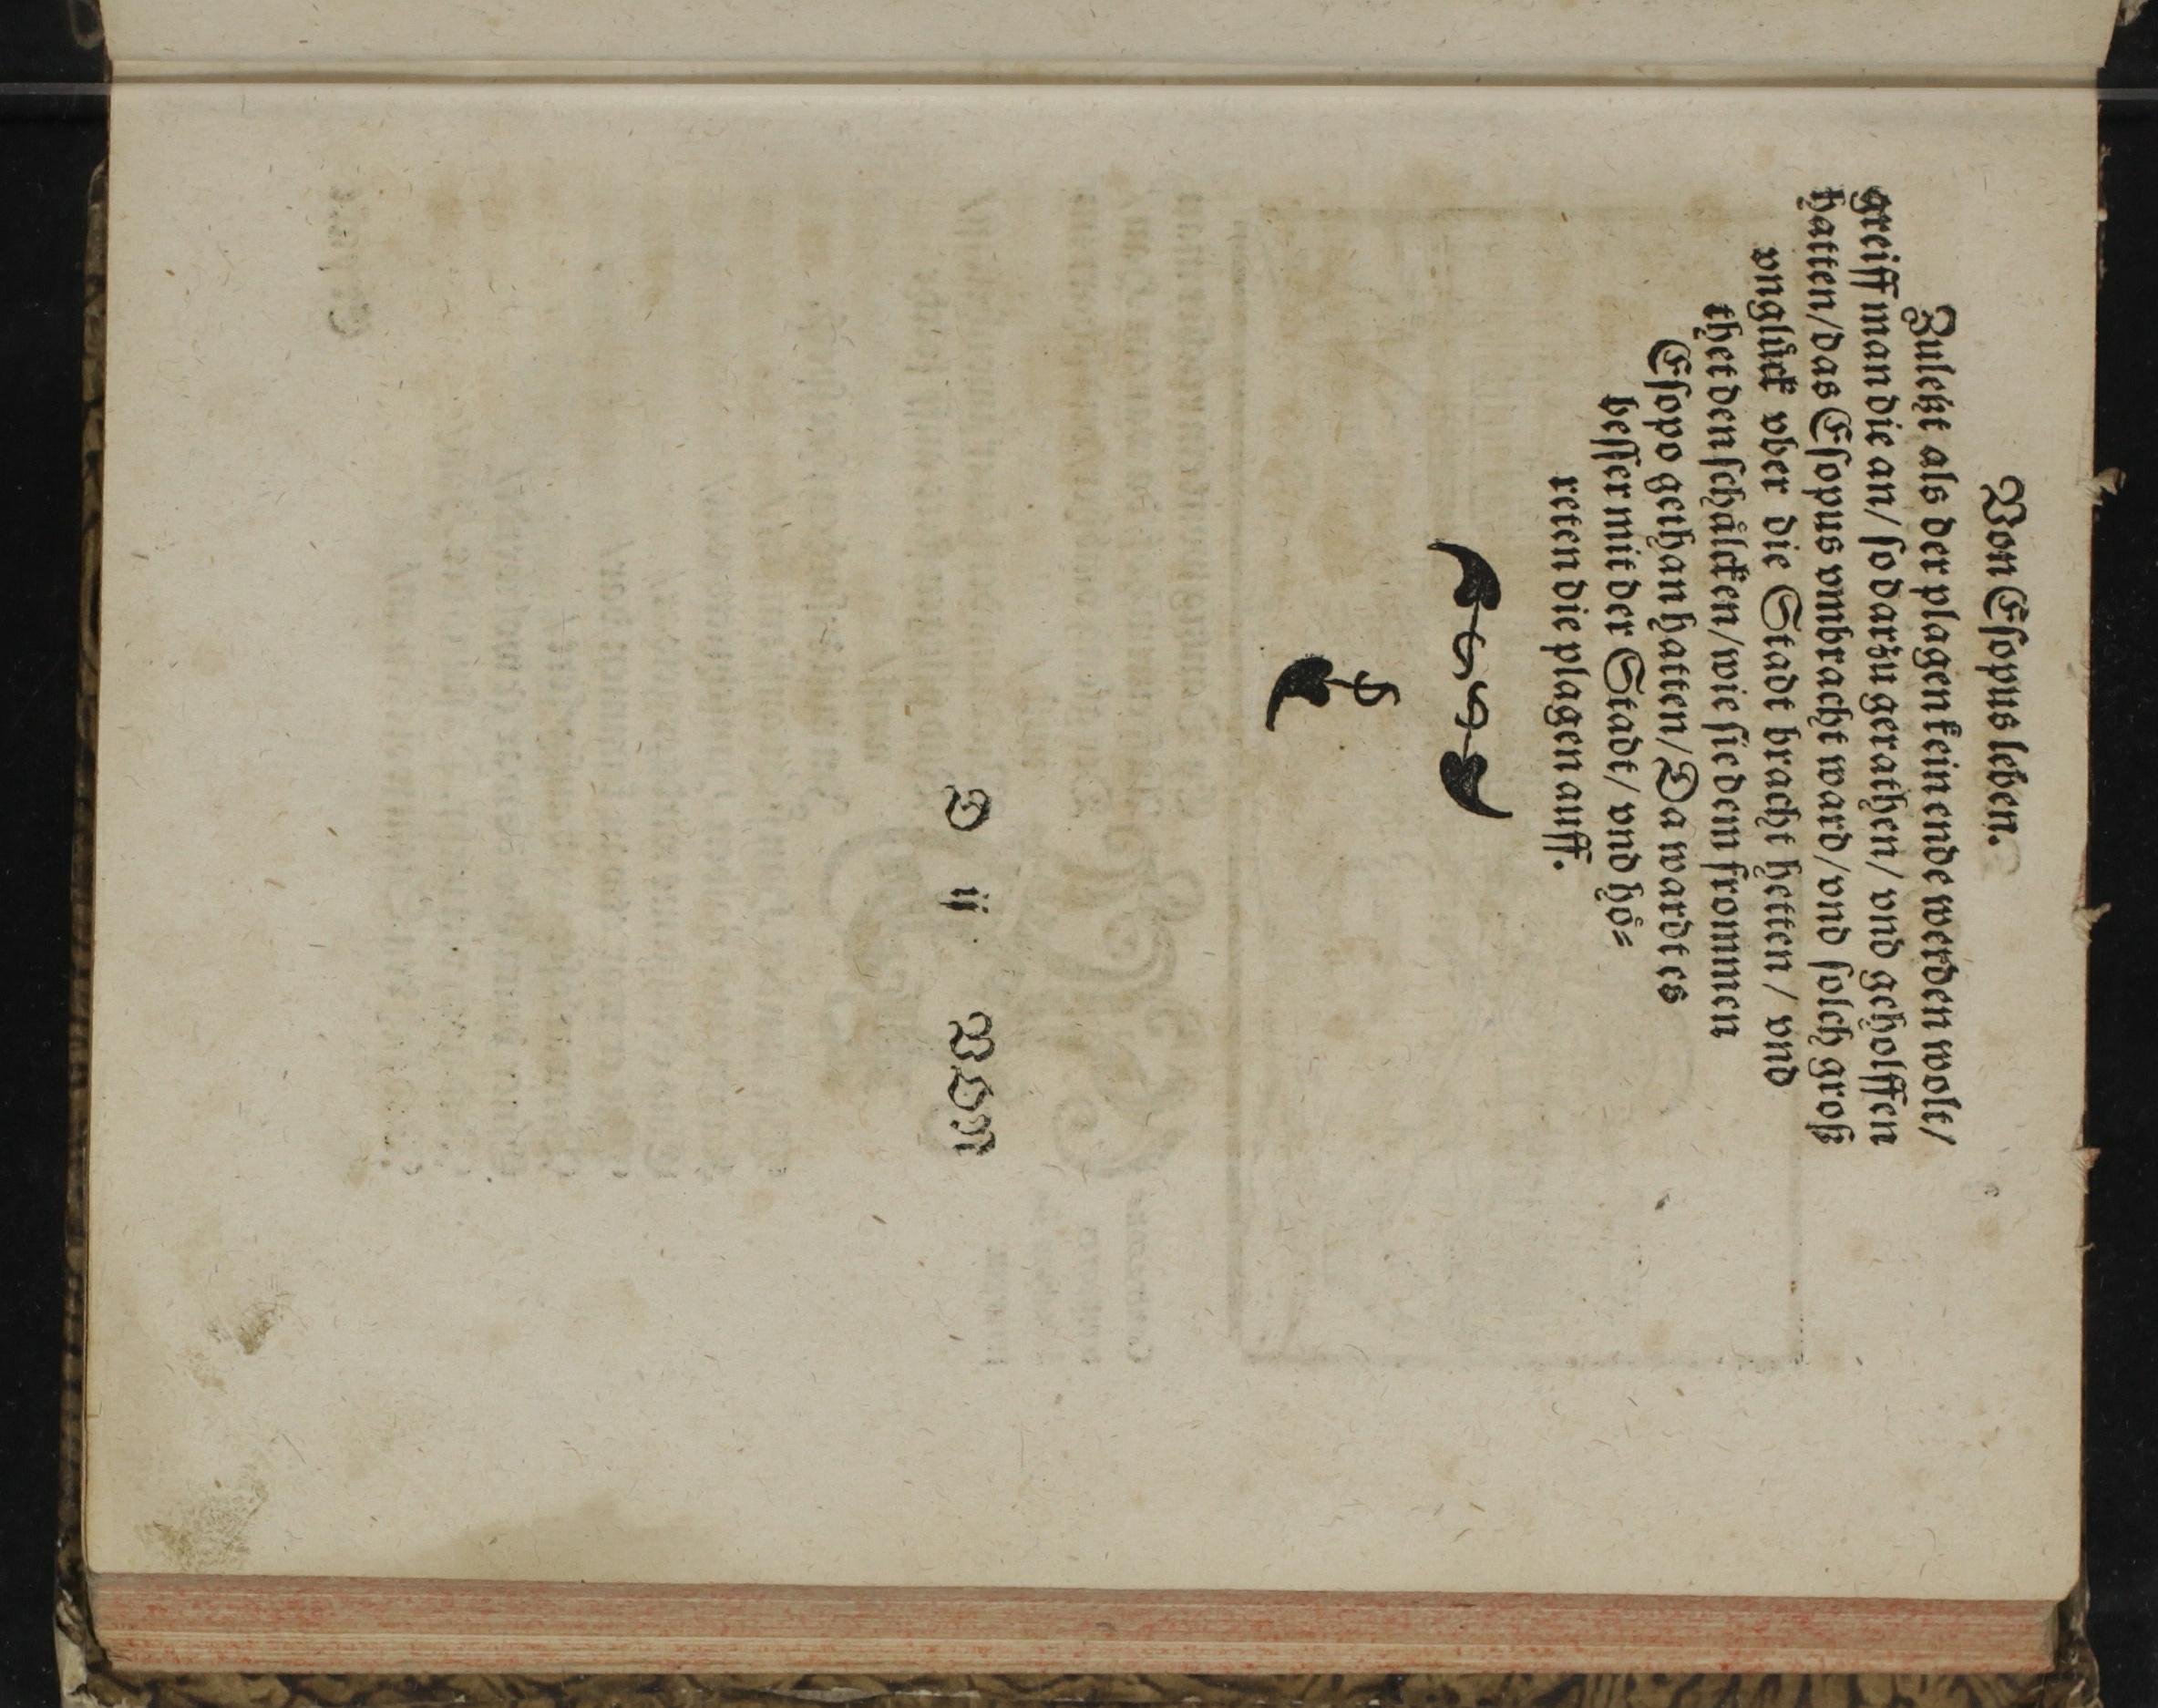 Von Eſopus leben.
Zuletzt als der plagen kein ende werden wolt/
greiff man die an/ ſo darzu gerathen/ vnd geholffen
hatten/ das Eſopus vmbracht ward/ vnd ſolch groß
vnglück vber die Stadt bracht hetten/ vnd
thet den ſchålcken/ wie ſie dem frommen
Eſopo gethan hatten/ Da wardt es
beſſer mit der Stadt/ vnd hoͤ=
reten die plagen auff.
D ij VOM